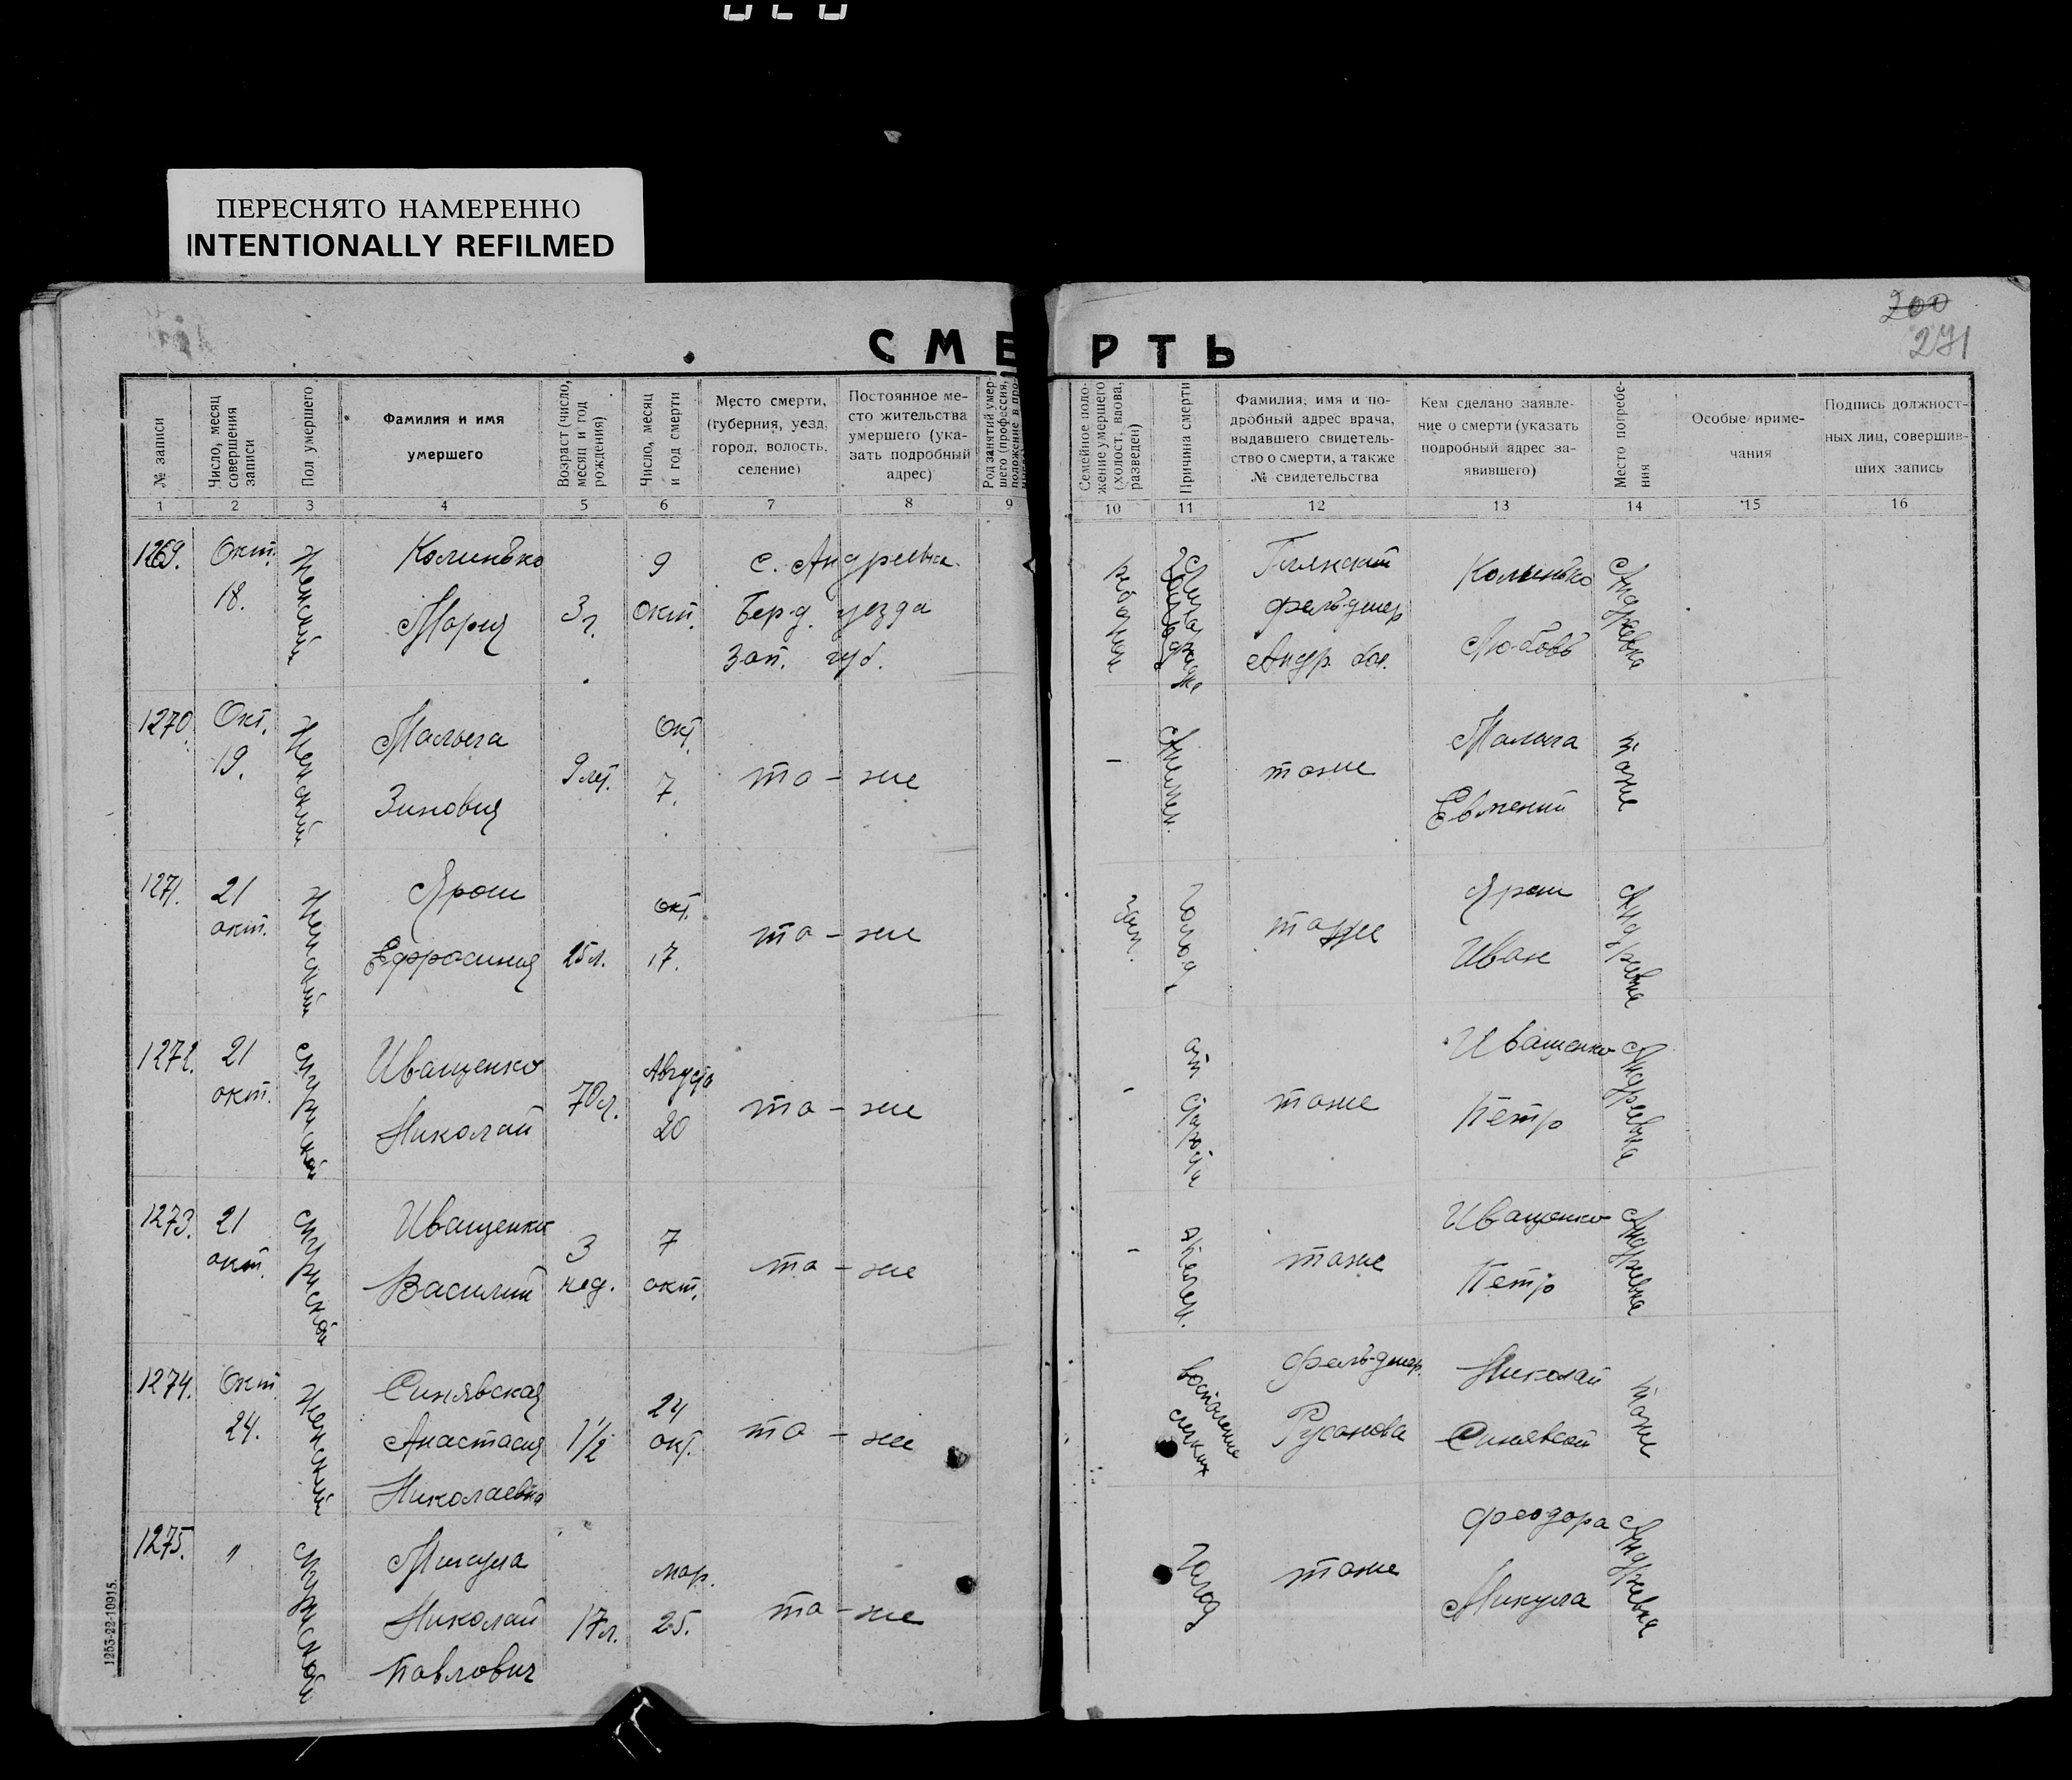 ПЕРЕСНЯТО НАМЕРЕННО
INTENTIONALLY REFILMED
200
271
СМЕРТЬ
№ записи
Число, месяц
совершения
записи
Пол умершего
Фамилия и имя
умершего
Возраст (число,
месяц и год
рождения)
Число, месяц
и год смерти
Место смерти,
(губерния, уезд,
город, волость,
селение)
Постоянное ме-
сто жительства
умершего (ука-
зать подробный
адрес)
Род занятий умер-
шего (профессия,
положение в про-
Семейное поло-
жение умершего
(холост, вдова,
разведен)
Причина смерти
Фамилия, имя и по-
дробный адрес врача,
выдавшего свидетель-
ство о смерти, а также
№ свидетельства
Кем сделано заявле-
ние о смерти (указать
подробный адрес за-
явившего)
Место погребе-
ния
Особые приме-
чания
Подпись должност-
ных лиц, совершив-
ших запись
1 2 3 4 5 6 7 8 9 10 11 12 13 14 15 16
1269.
Окт.
18.
Женский
Колинько
Мария
3 г.
9
окт.
с. Андреевка.
Берд. уезда
Зап. губ.
фельдшер
Андр. бол.
Колинько
Любовь
Андреевка
1270.
Окт.
19.
Женский
Малыга
Зиновия
9 лет.
Окт.
7.
то-же
-
тоже
Малыга
Евгений
тоже
1271.
21
окт.
Женский
Ярош
Ефросиния
25 л.
окт.
17.
то-же
зам.
Голод
тоже
Ярош
Иван
Андреевка
1272.
21
окт.
Мужской
Иващенко
Николай
70 л.
Августа
20
то-же
-
от старости
тоже
Иващенко
Петр
Андреевка
1273.
21
окт.
Мужской
Иващенко
Василий
3
нед.
7
окт.
то-же
-
тоже
Иващенко
Петр
Андреевка
1274.
Окт.
24.
Женский
Синявская
Анастасия
Николаевна
1 1/2
24
окт.
то-же
воспаление
легких
фельдшер.
Русанова
Николай
Синявский
тоже
1275.
"
Мужской
Микула
Николай
Павлович
17 л.
мар.
25.
то-же
Голод
тоже
Феодора
Микула
Андреевка
1253-22-10915.